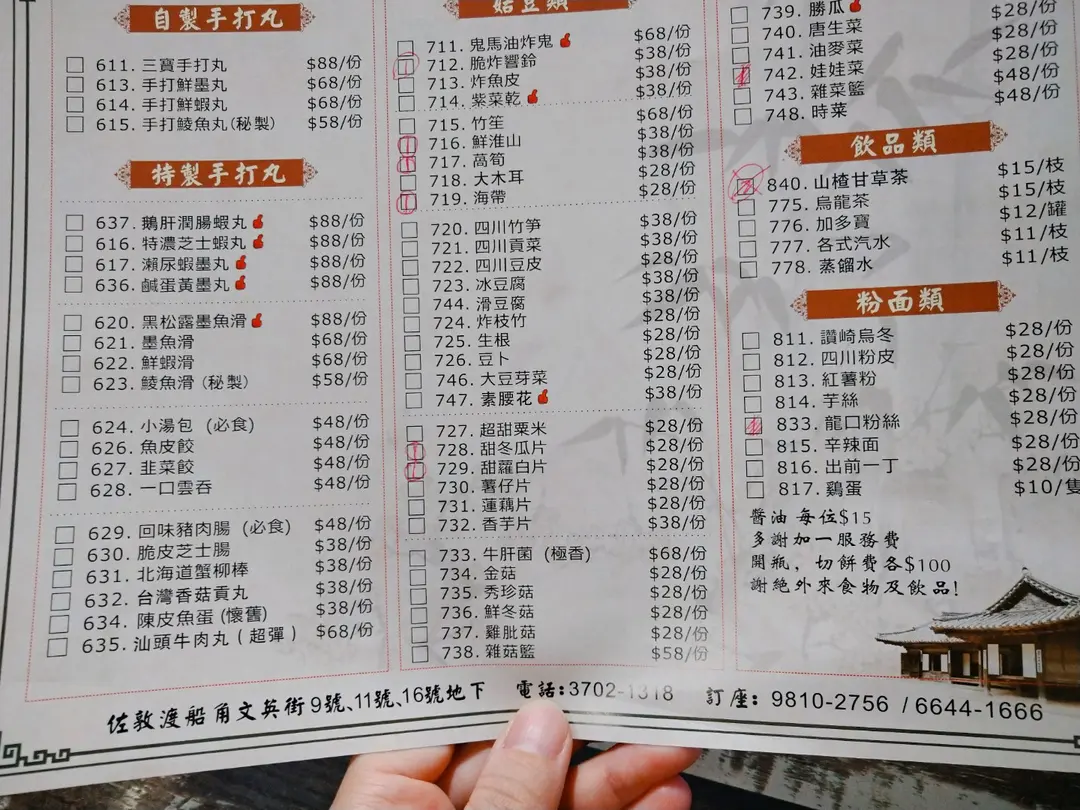 自製手打丸
611. 三寶手打丸 $88/份
613. 手打鮮墨丸 $68/份
614. 手打鮮蝦丸 $68/份
615. 手打鯪魚丸(秘製) $58/份
特製手打丸
637. 鵝肝潤腸蝦丸 $88/份
616. 特濃芝士蝦丸 $88/份
617. 瀨尿蝦墨丸 $88/份
636. 鹹蛋黃墨丸 $88/份
620. 黑松露墨魚滑 $88/份
621. 墨魚滑 $68/份
622. 鮮蝦滑 $68/份
623. 鯪魚滑 (秘製) $58/份
624. 小湯包 (必食) $48/份
626. 魚皮餃 $48/份
627. 韭菜餃 $48/份
628. 一口雲吞 $48/份
629. 回味豬肉腸 (必食) $48/份
630. 脆皮芝士腸 $38/份
631. 北海道蟹柳棒 $38/份
632. 台灣香菇貢丸 $38/份
634. 陳皮魚蛋 (懷舊) $38/份
635. 汕頭牛肉丸 ( 超彈 ) $68/份
菇豆類
711. 鬼馬油炸鬼 $68/份
712. 脆炸響鈴 $38/份
713. 炸魚皮 $38/份
714. 紫菜乾 $38/份
715. 竹笙 $68/份
716. 鮮淮山 $38/份
717. 萵筍 $38/份
718. 大木耳 $28/份
719. 海帶 $28/份
720. 四川竹笋 $38/份
721. 四川貢菜 $38/份
722. 四川豆皮 $28/份
723. 冰豆腐 $38/份
744. 滑豆腐 $38/份
724. 炸枝竹 $28/份
725. 生根 $28/份
726. 豆卜 $28/份
746. 大豆芽菜 $28/份
747. 素腰花 $38/份
727. 超甜粟米 $28/份
728. 甜冬瓜片 $28/份
729. 甜蘿白片 $28/份
730. 薯仔片 $28/份
731. 蓮藕片 $28/份
732. 香芋片 $38/份
733. 牛肝菌 (極香) $68/份
734. 金菇 $28/份
735. 秀珍菇 $28/份
736. 鮮冬菇 $28/份
737. 雞肶菇 $28/份
738. 雜菇籃 $58/份
739. 勝瓜 $28/份
740. 唐生菜 $28/份
741. 油麥菜 $28/份
742. 娃娃菜 $48/份
743. 雜菜籃 $48/份
748. 時菜
飲品類
840. 山楂甘草茶 $15/枝
775. 烏龍茶 $15/枝
776. 加多寶 $12/罐
777. 各式汽水 $11/枝
778. 蒸餾水 $11/枝
粉面類
811. 讚崎烏冬 $28/份
812. 四川粉皮 $28/份
813. 紅薯粉 $28/份
814. 芋絲 $28/份
833. 龍口粉絲 $28/份
815. 辛辣面 $28/份
816. 出前一丁 $28/份
817. 鷄蛋 $10/隻
醬油 每位$15
多謝加一服務費
開瓶, 切餅費各$100
謝絕外來食物及飲品!
佐敦渡船角文英街9號、11號、16號地下 電話:3702-1318 訂座: 9810-2756 / 6644-1666